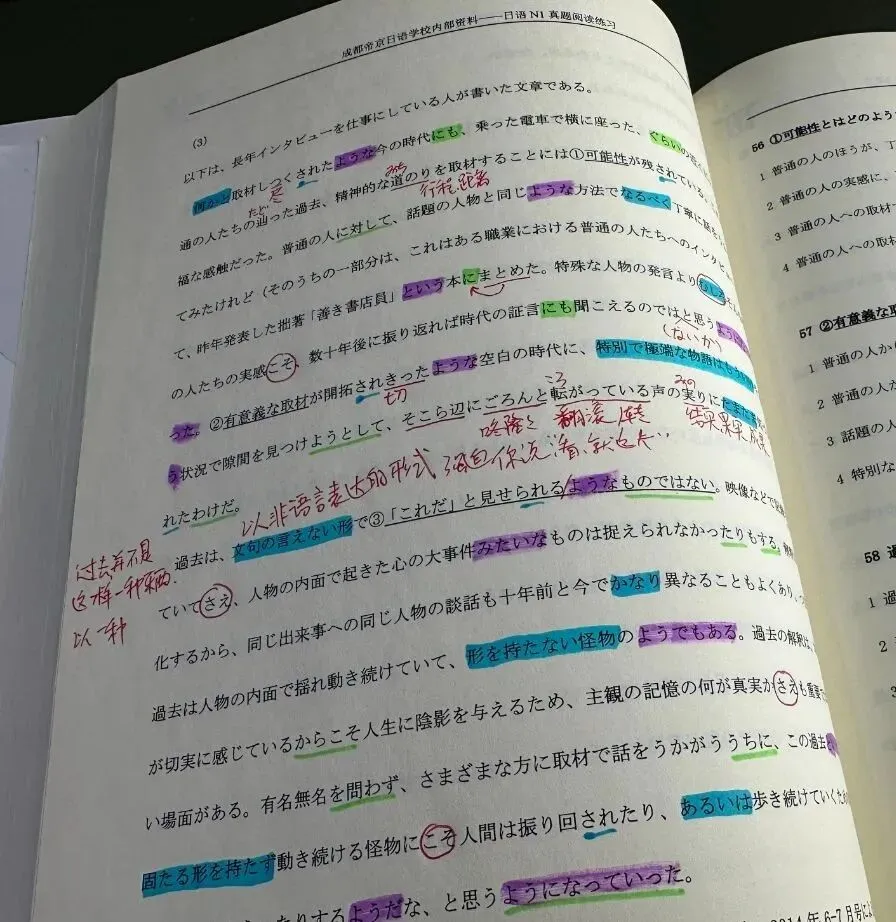 成都帝京日语学校内部资料——日语 N1 真题阅读练习
(3)
以下は、長年インタビューを仕事にしている人が書いた文章である。
何かと取材しつくされたような今の時代にも、乗った電車で横に座った、ぐらいの
尽
みち
通の人たちの辿った過去、精神的な道のりを取材することには①可能性が残されている。
たど
行程.距离
福な感触だった。普通の人に対して、話題の人物と同じような方法でなるべく丁寧に
てみたけれど（そのうちの一部分は、これはある職業における普通の人たちへのインタビュ
て、昨年発表した拙著「善き書店員」という本にまとめた。特殊な人物の発言よりむしろ
の人たちの実感こそ、数十年後に振り返れば時代の証言にも聞こえるのではと思う
(ないか)
った。②有意義な取材が開拓されきったような空白の時代に、特別で極端な物語は
切
ころ
みの
う状況で隙間を見つけようとして、そこら辺にごろんと転がっている声の実りにたまたま
翻滚
れたわけだ。
以非语言表达的形式
過去は、文句の言えない形で③「これだ」と見せられるようなものではない。映像などで
过去并不是
这样一种东西
以一种
ていてさえ、人物の内面で起きた心の大事件みたいなものは捉えられなかったりもする。
化するから、同じ出来事への同じ人物の談話も十年前と今でかなり異なることもよくあり、
過去は人物の内面で揺れ動き続けていて、形を持たない怪物のようでもある。過去の解釈は、
が切実に感じているからこそ人生に陰影を与えるため、主観の記憶の何が真実かさえも重要
い場面がある。有名無名を問わず、さまざまな方に取材で話をうかがううちに、この過去
固たる形を持たず動き続ける怪物にこそ人間は振り回されたり、あるいは歩き続けていくため
たりするようだな、と思うようになっていった。
2014年6-7月号
56 ①可能性とはどのよう
1 普通の人のほうが、
2 普通の人の実感に、
3 普通の人への取材
4 普通の人への取
57 ②有意義な取
1 普通の人か
2 普通の人
3 話題の人
4 特別な
58 過
1 過
2
3
4